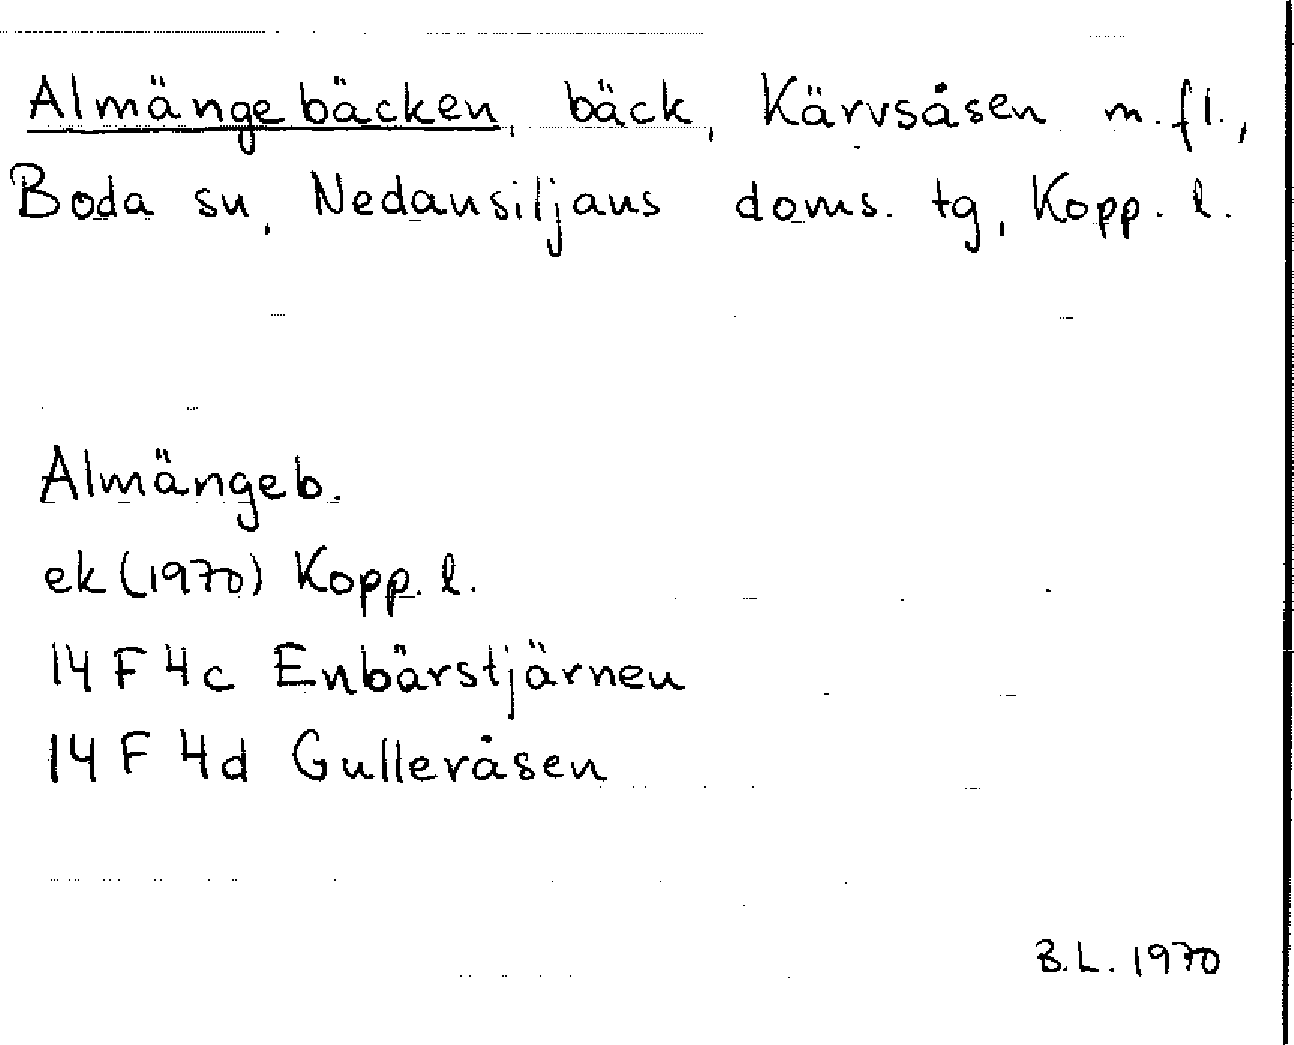 Almängebäcken, bäck, Kärvsåsen m.fl.,
Boda sn, Nedansiljans doms. tg, Kopp. l.
Almängeb.
ek (1970) Kopp. l.
14 F 4c Enbärstjärnen
14 F 4d Gulleråsen
B.L. 1970